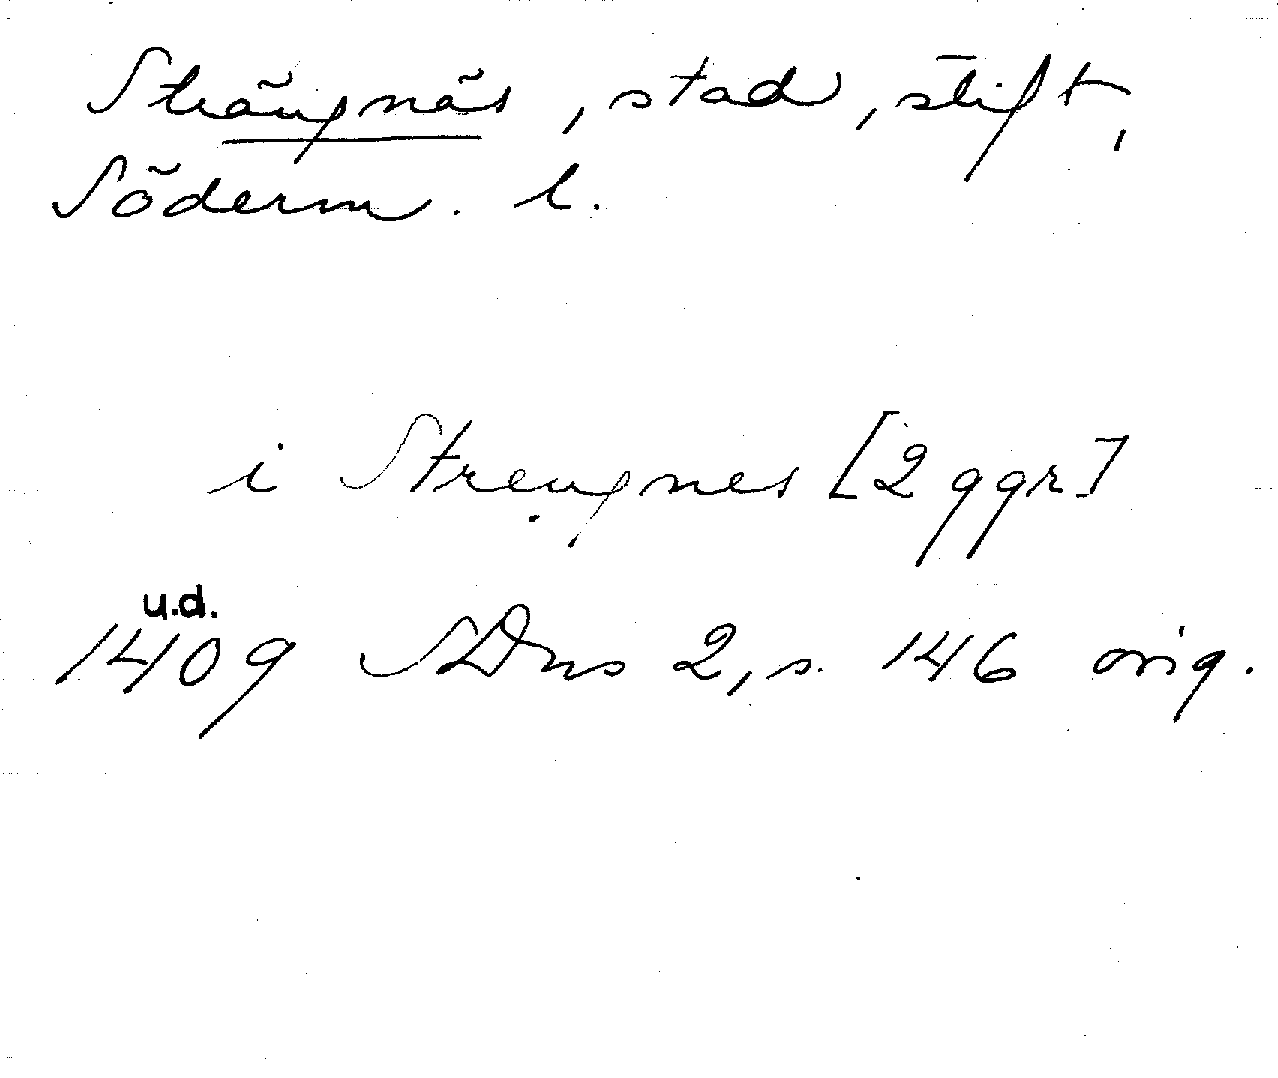 Strängnäs, stad, stift,
Söderm. l.
i Strengnes [2 ggr]
u.d.
1409 SDns 2, s. 146 orig.